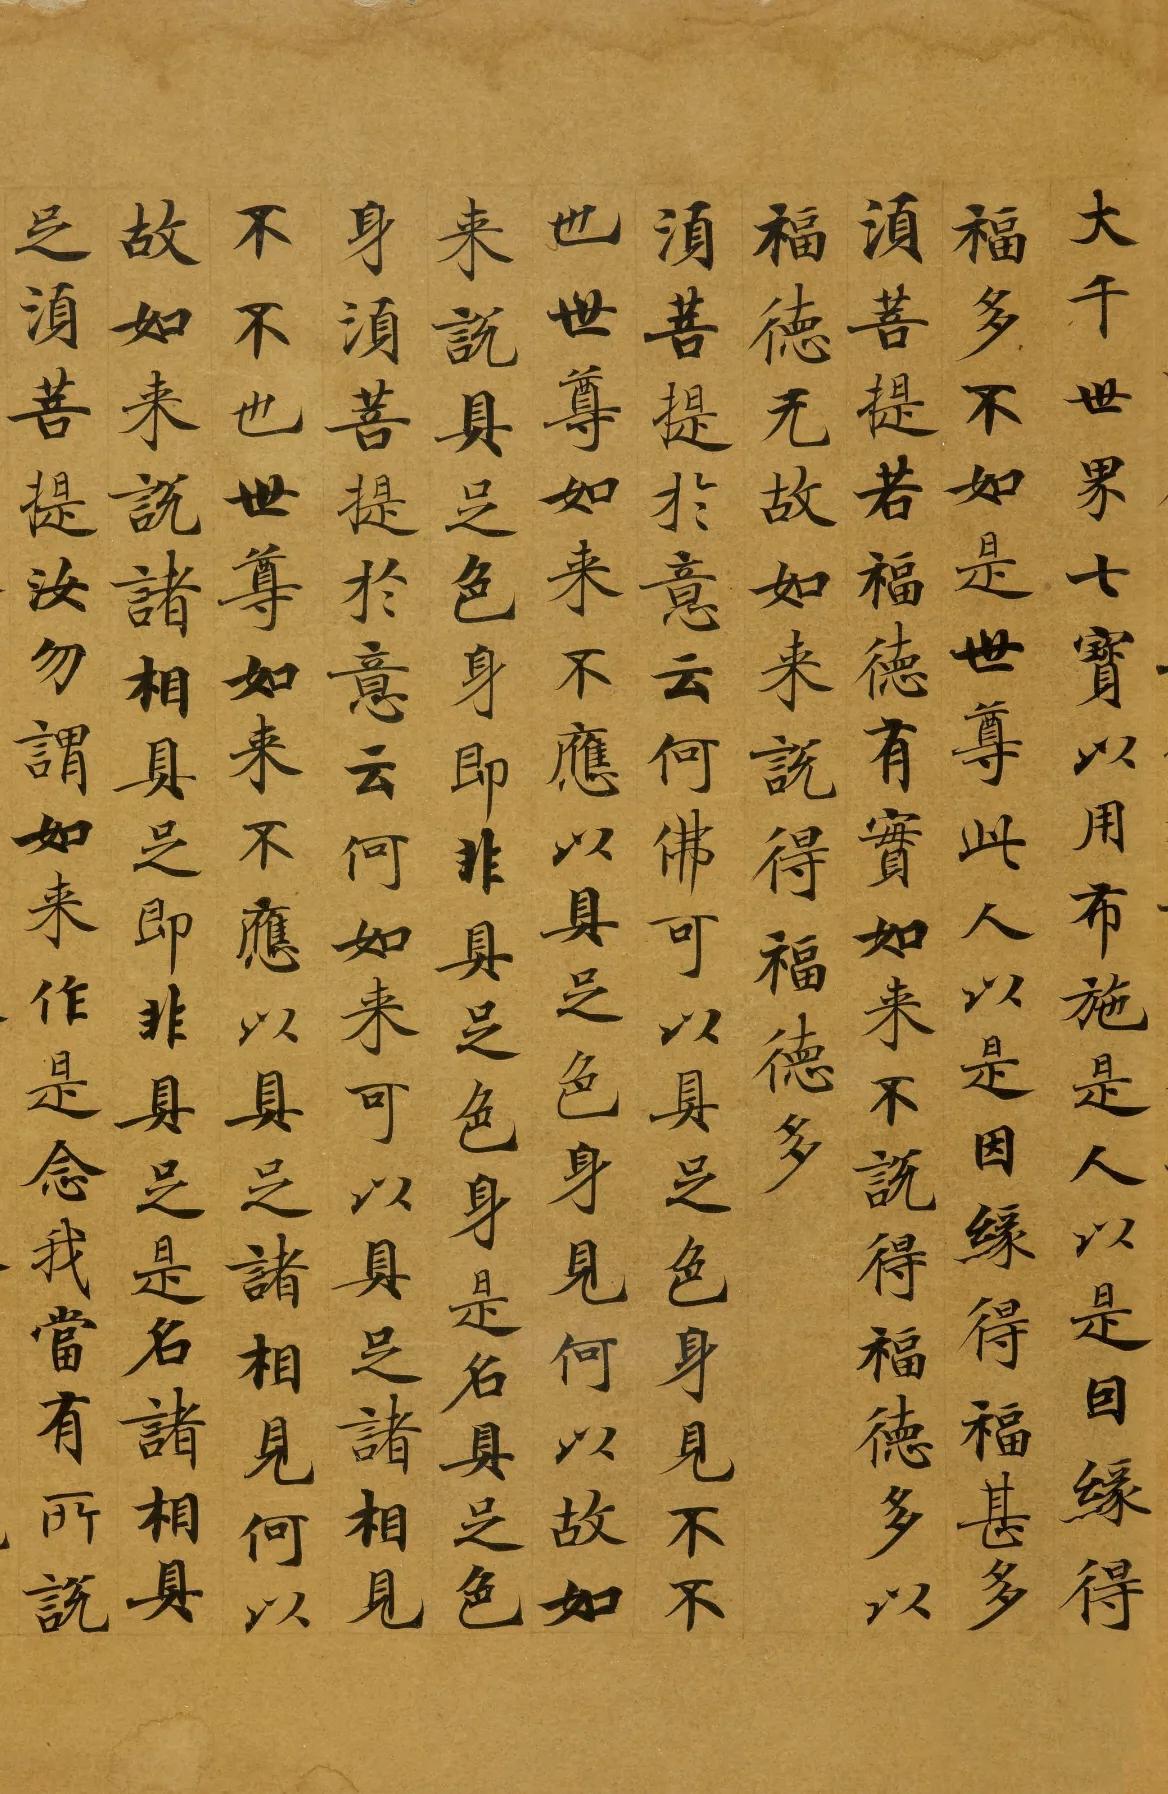 大千世界七寶以用布施是人以是因緣得
福多不如是世尊此人以是因緣得福甚多
須菩提若福德有實如来不說得福德多以
福德无故如来說得福德多
須菩提於意云何佛可以具足色身見不不
也世尊如来不應以具足色身見何以故如
来說具足色身即非具足色身是名具足色
身須菩提於意云何如来可以具足諸相見
不不也世尊如来不應以具足諸相見何以
故如来說諸相具足即非具足是名諸相具
足須菩提汝勿謂如来作是念我當有所說